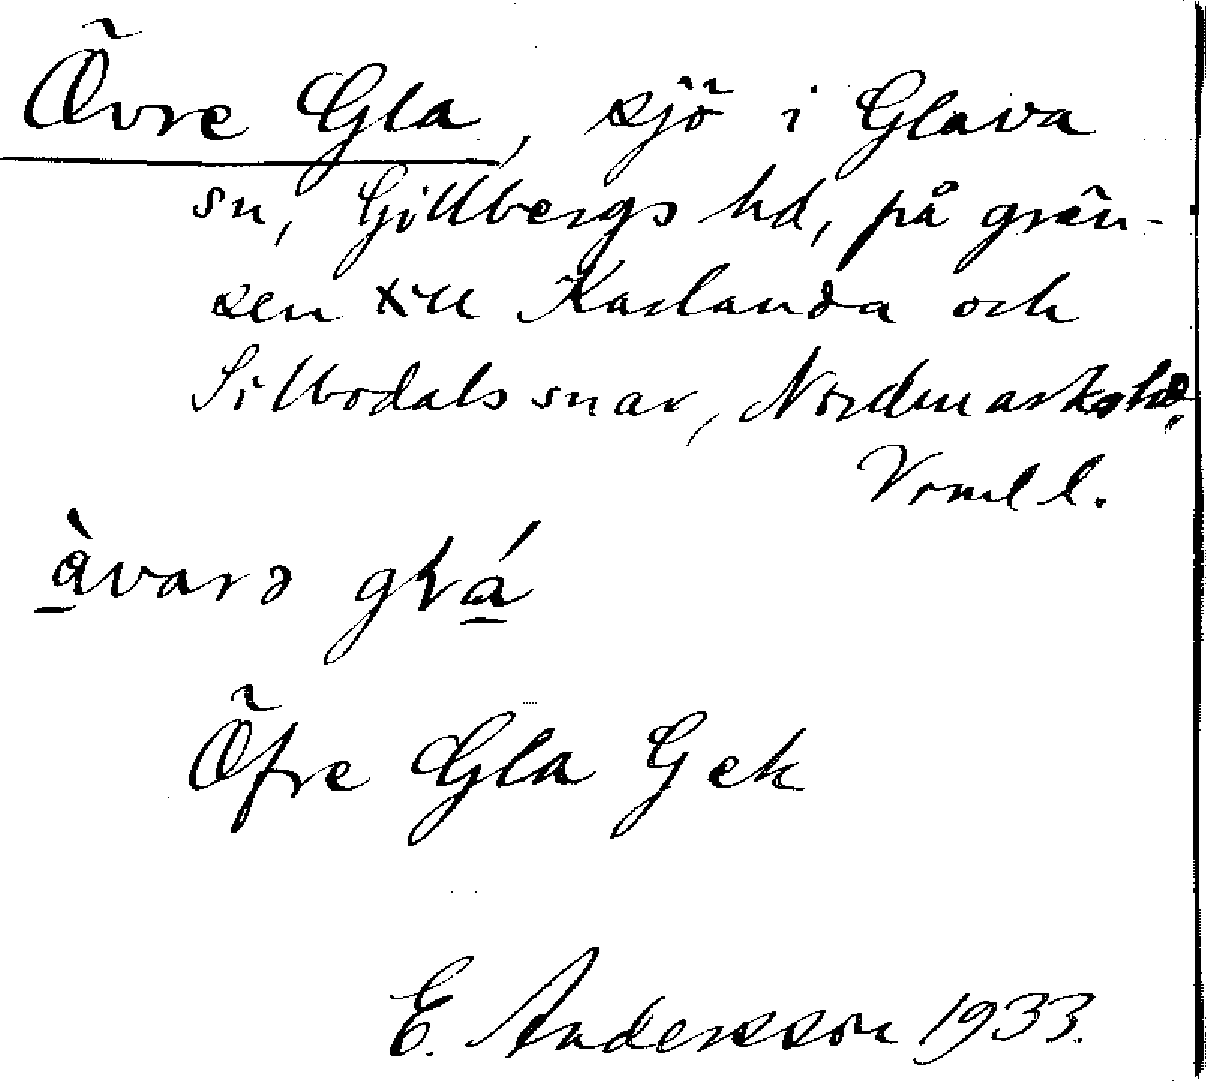 Övre Gla, sjö i Glava
sn, Gillbergs hd, på grän-
sen till Karlanda och
Sillbodals snar, Nordmarks hd.
Vrml l.
à̱varə glá̱
Öfre Gla Gek
E. Andersson 1933.